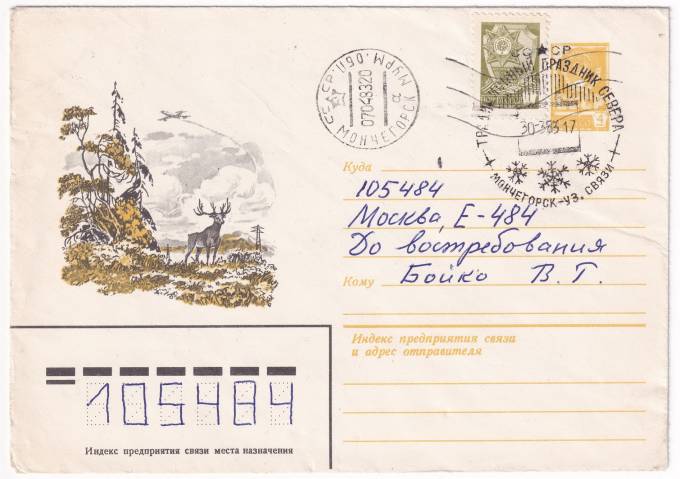 СССР
МУРМ. ОБЛ.
07048320
МОНЧЕГОРСК
а
СССР
ПРАЗДНИК СЕВЕРА
30-3-83.17
МОНЧЕГОРСК-УЗ. СВЯЗИ
4
Куда
105484
Москва, Е-484
До востребования
Кому Бойко В. Г.
Индекс предприятия связи
и адрес отправителя
105484
Индекс предприятия связи места назначения